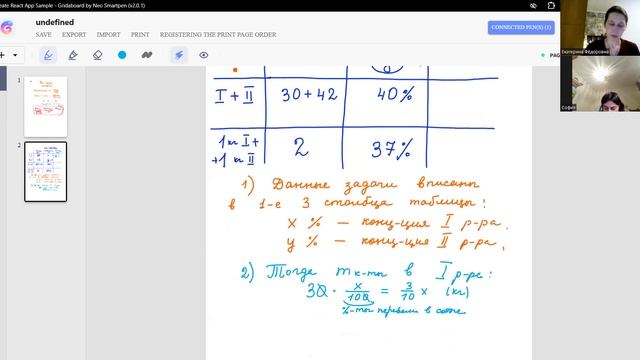 eate React App Sample - Gridaboard by Neo Smartpen (v2.0.1)
undefined
SAVE EXPORT IMPORT PRINT REGISTERING THE PRINT PAGE ORDER
CONNECTED PEN(S) (1)
PAG
1
2
I + II 30 + 42 40%
1 кг I +
+1 кг II 2 37%
1) Данные задачи вписаны
в 1-е 3 столбца таблицы:
x % — конц-ция I р-ра,
y % — конц-ция II р-ра.
2) Тогда m к-ты в I р-ре:
30 · x/100 = 3/10 x (кг)
%-ты перевели в сотые
Екатерина Фёдоровна
София